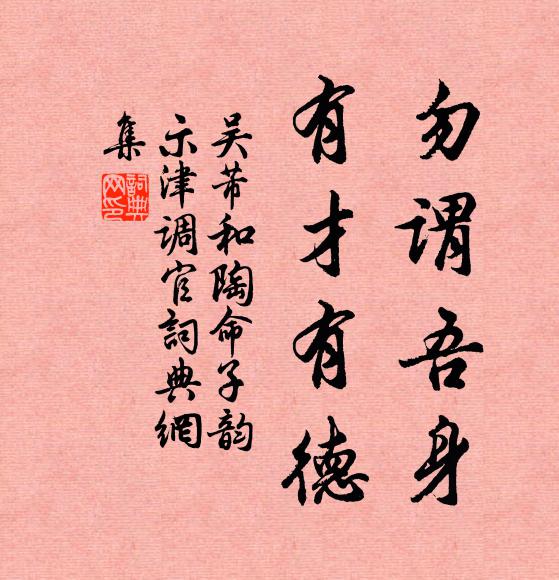 勿谓吾身
有才有德
吴芾和陶命子韵
示津调官詞典網
集
詞典网印